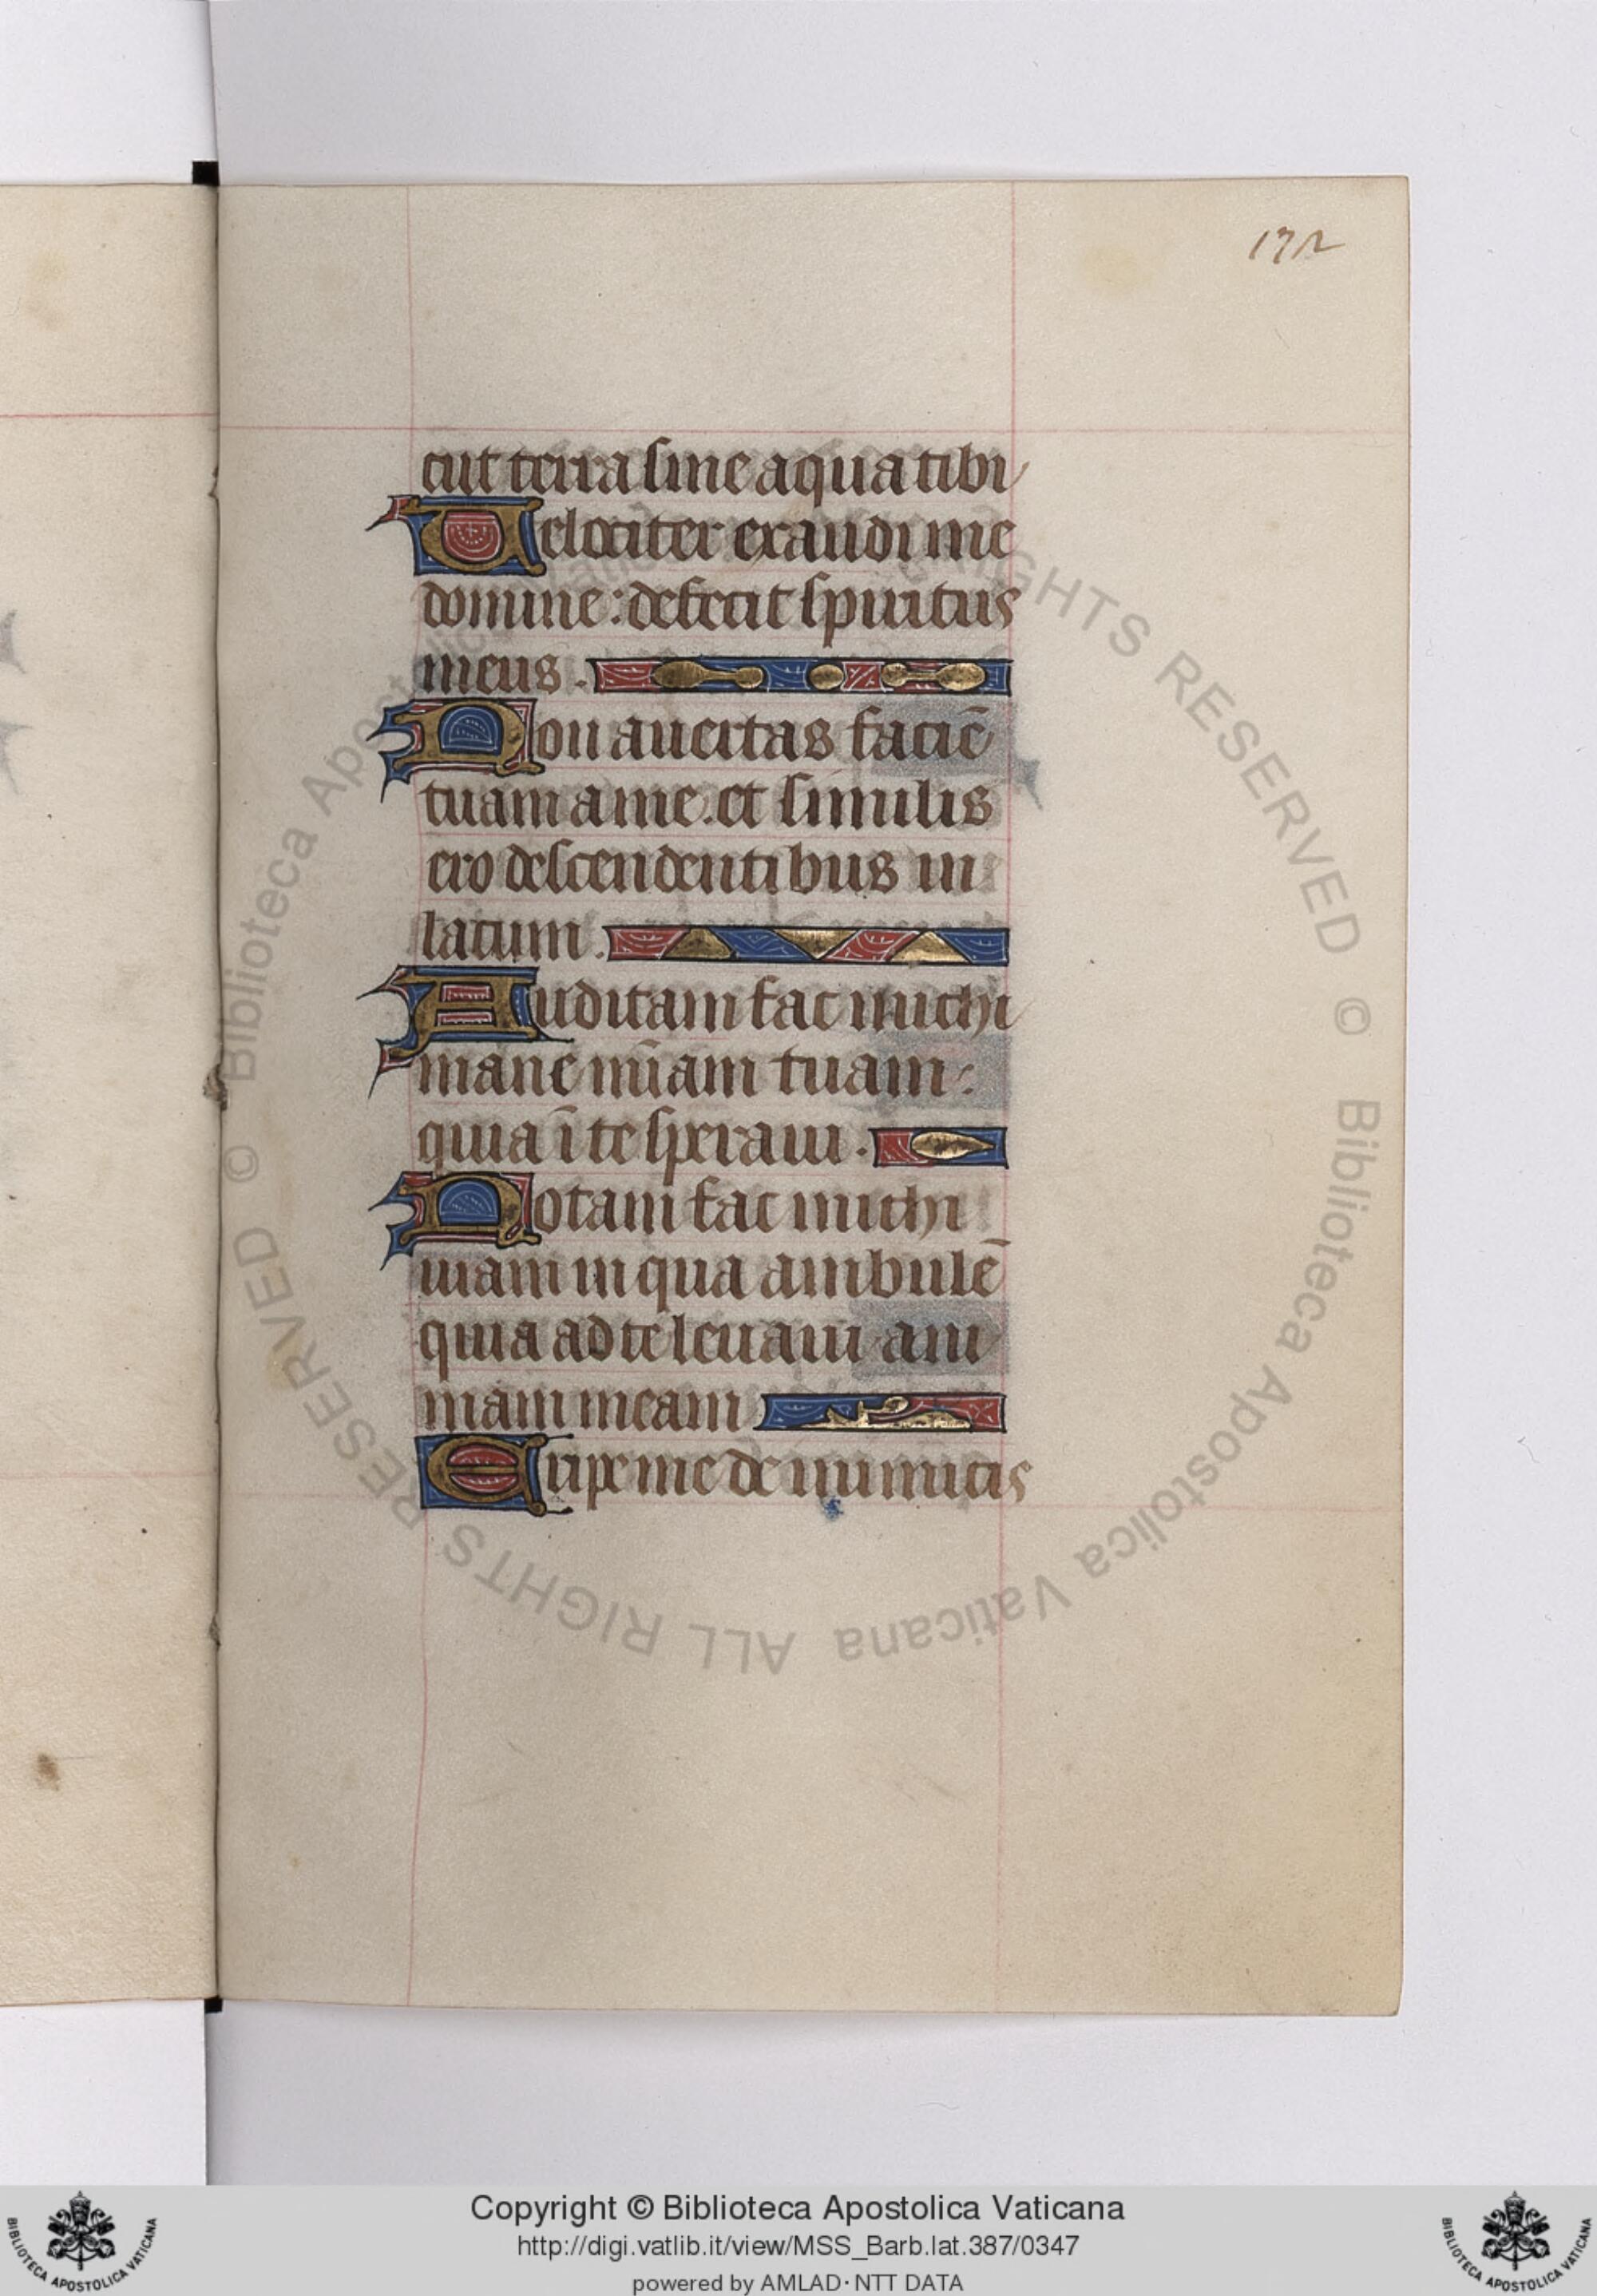 172
cut terra sine aqua tibi
Velociter exaudi me
domine: defecit spiritus
meus.
Non avertas faciē
tuam a me. et similis
ero descendentibus in
lacum.
Auditam fac michi
mane m̄iam tuam:
quia ī te speraui.
Notam fac michi
uiam in qua ambulē
quia ad te leuaui ani
mam meam
Eripe me de inimicis
© Biblioteca Apostolica Vaticana ALL RIGHTS RESERVED © Biblioteca Apostolica Vaticana ALL RIGHTS RESERVED
Copyright © Biblioteca Apostolica Vaticana
http://digi.vatlib.it/view/MSS_Barb.lat.387/0347
powered by AMLAD·NTT DATA
BIBLIOTECA APOSTOLICA VATICANA
BIBLIOTECA APOSTOLICA VATICANA